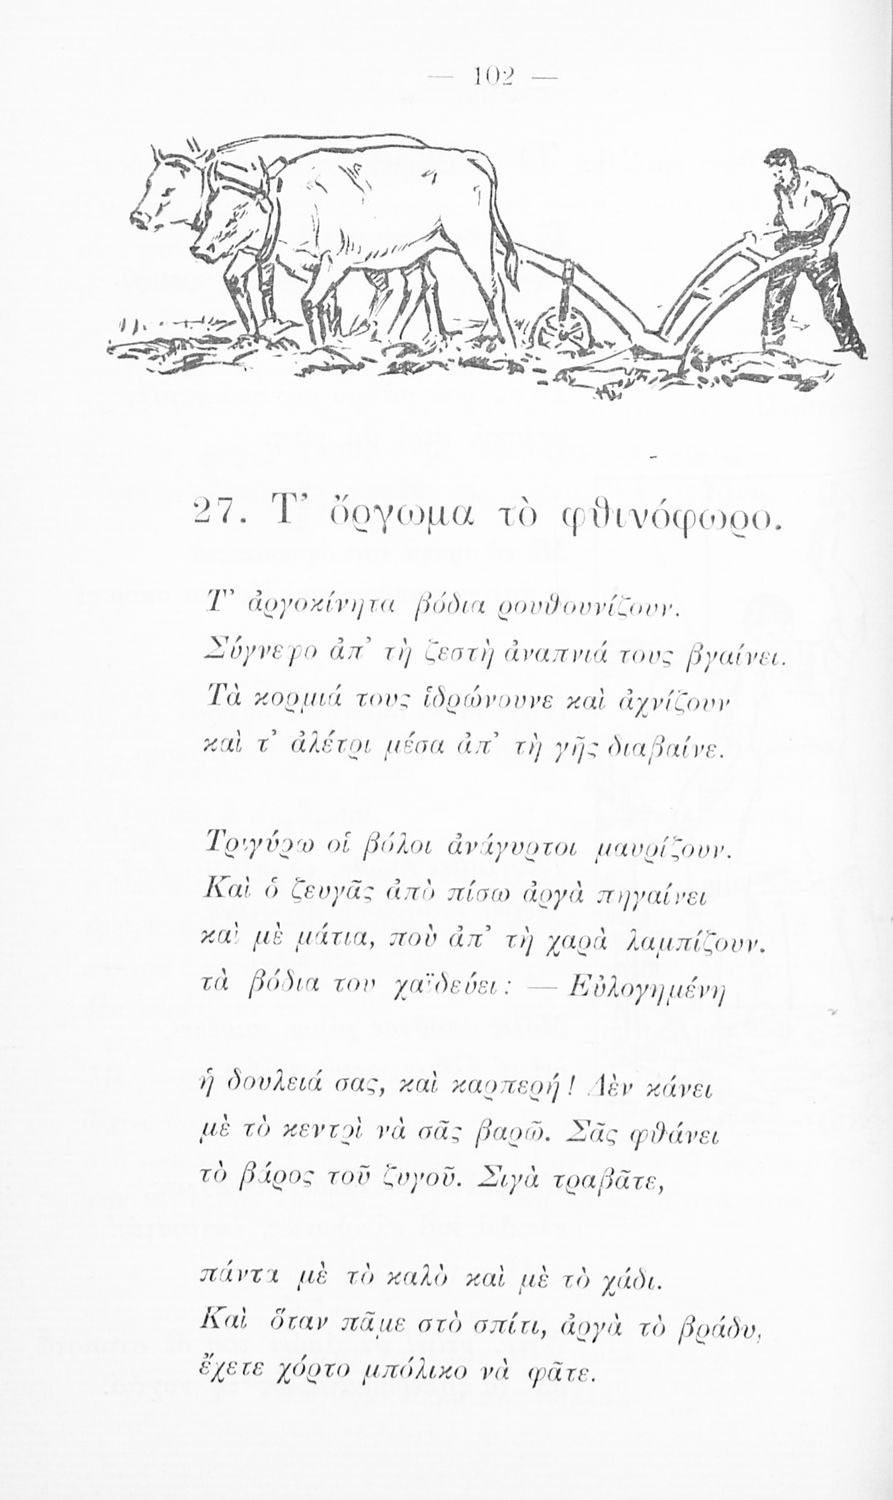 — 102 —
27. Τ’ ὄργωμα τὸ φθινόφωρο.
Τ’ ἀργοκίνητα βόδια ρουθουνίζουν.
Σύγνεφο ἀπ’ τὴ ζεστὴ ἀναπνιά τους βγαίνει.
Τὰ κορμιά τους ἱδρώνουνε καὶ ἀχνίζουν
καὶ τ’ ἀλέτρι μέσα ἀπ’ τὴ γῆς διαβαίνε.
Τριγύρω οἱ βόλοι ἀνάγυρτοι μαυρίζουν.
Καὶ ὁ ζευγᾶς ἀπὸ πίσω ἀργὰ πηγαίνει
καὶ μὲ μάτια, ποὺ ἀπ’ τὴ χαρὰ λαμπίζουν.
τὰ βόδια του χαϊδεύει: — Εὐλογημένη
ἡ δουλειά σας, καὶ καρπερή! Δὲν κάνει
μὲ τὸ κεντρὶ νὰ σᾶς βαρῶ. Σᾶς φθάνει
τὸ βάρος τοῦ ζυγοῦ. Σιγὰ τραβᾶτε,
πάντα μὲ τὸ καλὸ καὶ μὲ τὸ χάδι.
Καὶ ὅταν πᾶμε στὸ σπίτι, ἀργὰ τὸ βράδυ,
ἔχετε χόρτο μπόλικο νὰ φᾶτε.